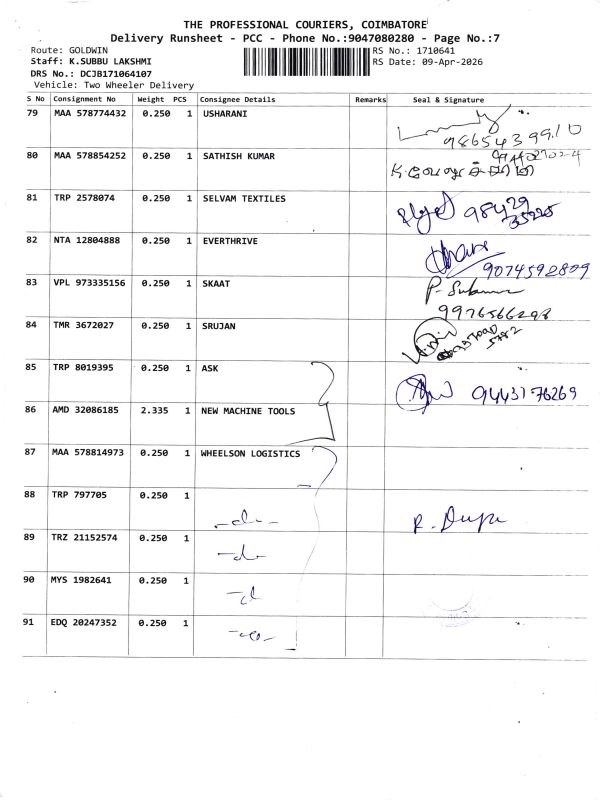 THE PROFESSIONAL COURIERS, COIMBATORE
Delivery Runsheet - PCC - Phone No.:9047080280 - Page No.:7
Route: GOLDWIN
RS No.: 1710641
Staff: K.SUBBU LAKSHMI
RS Date: 09-Apr-2026
DRS No.: DCJB171064107
Vehicle: Two Wheeler Delivery
S No Consignment No Weight PCS Consignee Details Remarks Seal & Signature
79 MAA 578774432 0.250 1 USHARANI
9865439910
80 MAA 578854252 0.250 1 SATHISH KUMAR
81 TRP 2578074 0.250 1 SELVAM TEXTILES
98429
82 NTA 12804888 0.250 1 EVERTHRIVE
9074592809
83 VPL 973335156 0.250 1 SKAAT
9976566298
84 TMR 3672027 0.250 1 SRUJAN
85 TRP 8019395 0.250 1 ASK
9443176269
86 AMD 32086185 2.335 1 NEW MACHINE TOOLS
87 MAA 578814973 0.250 1 WHEELSON LOGISTICS
88 TRP 797705 0.250 1
-do-
89 TRZ 21152574 0.250 1
-do-
90 MYS 1982641 0.250 1
91 EDQ 20247352 0.250 1